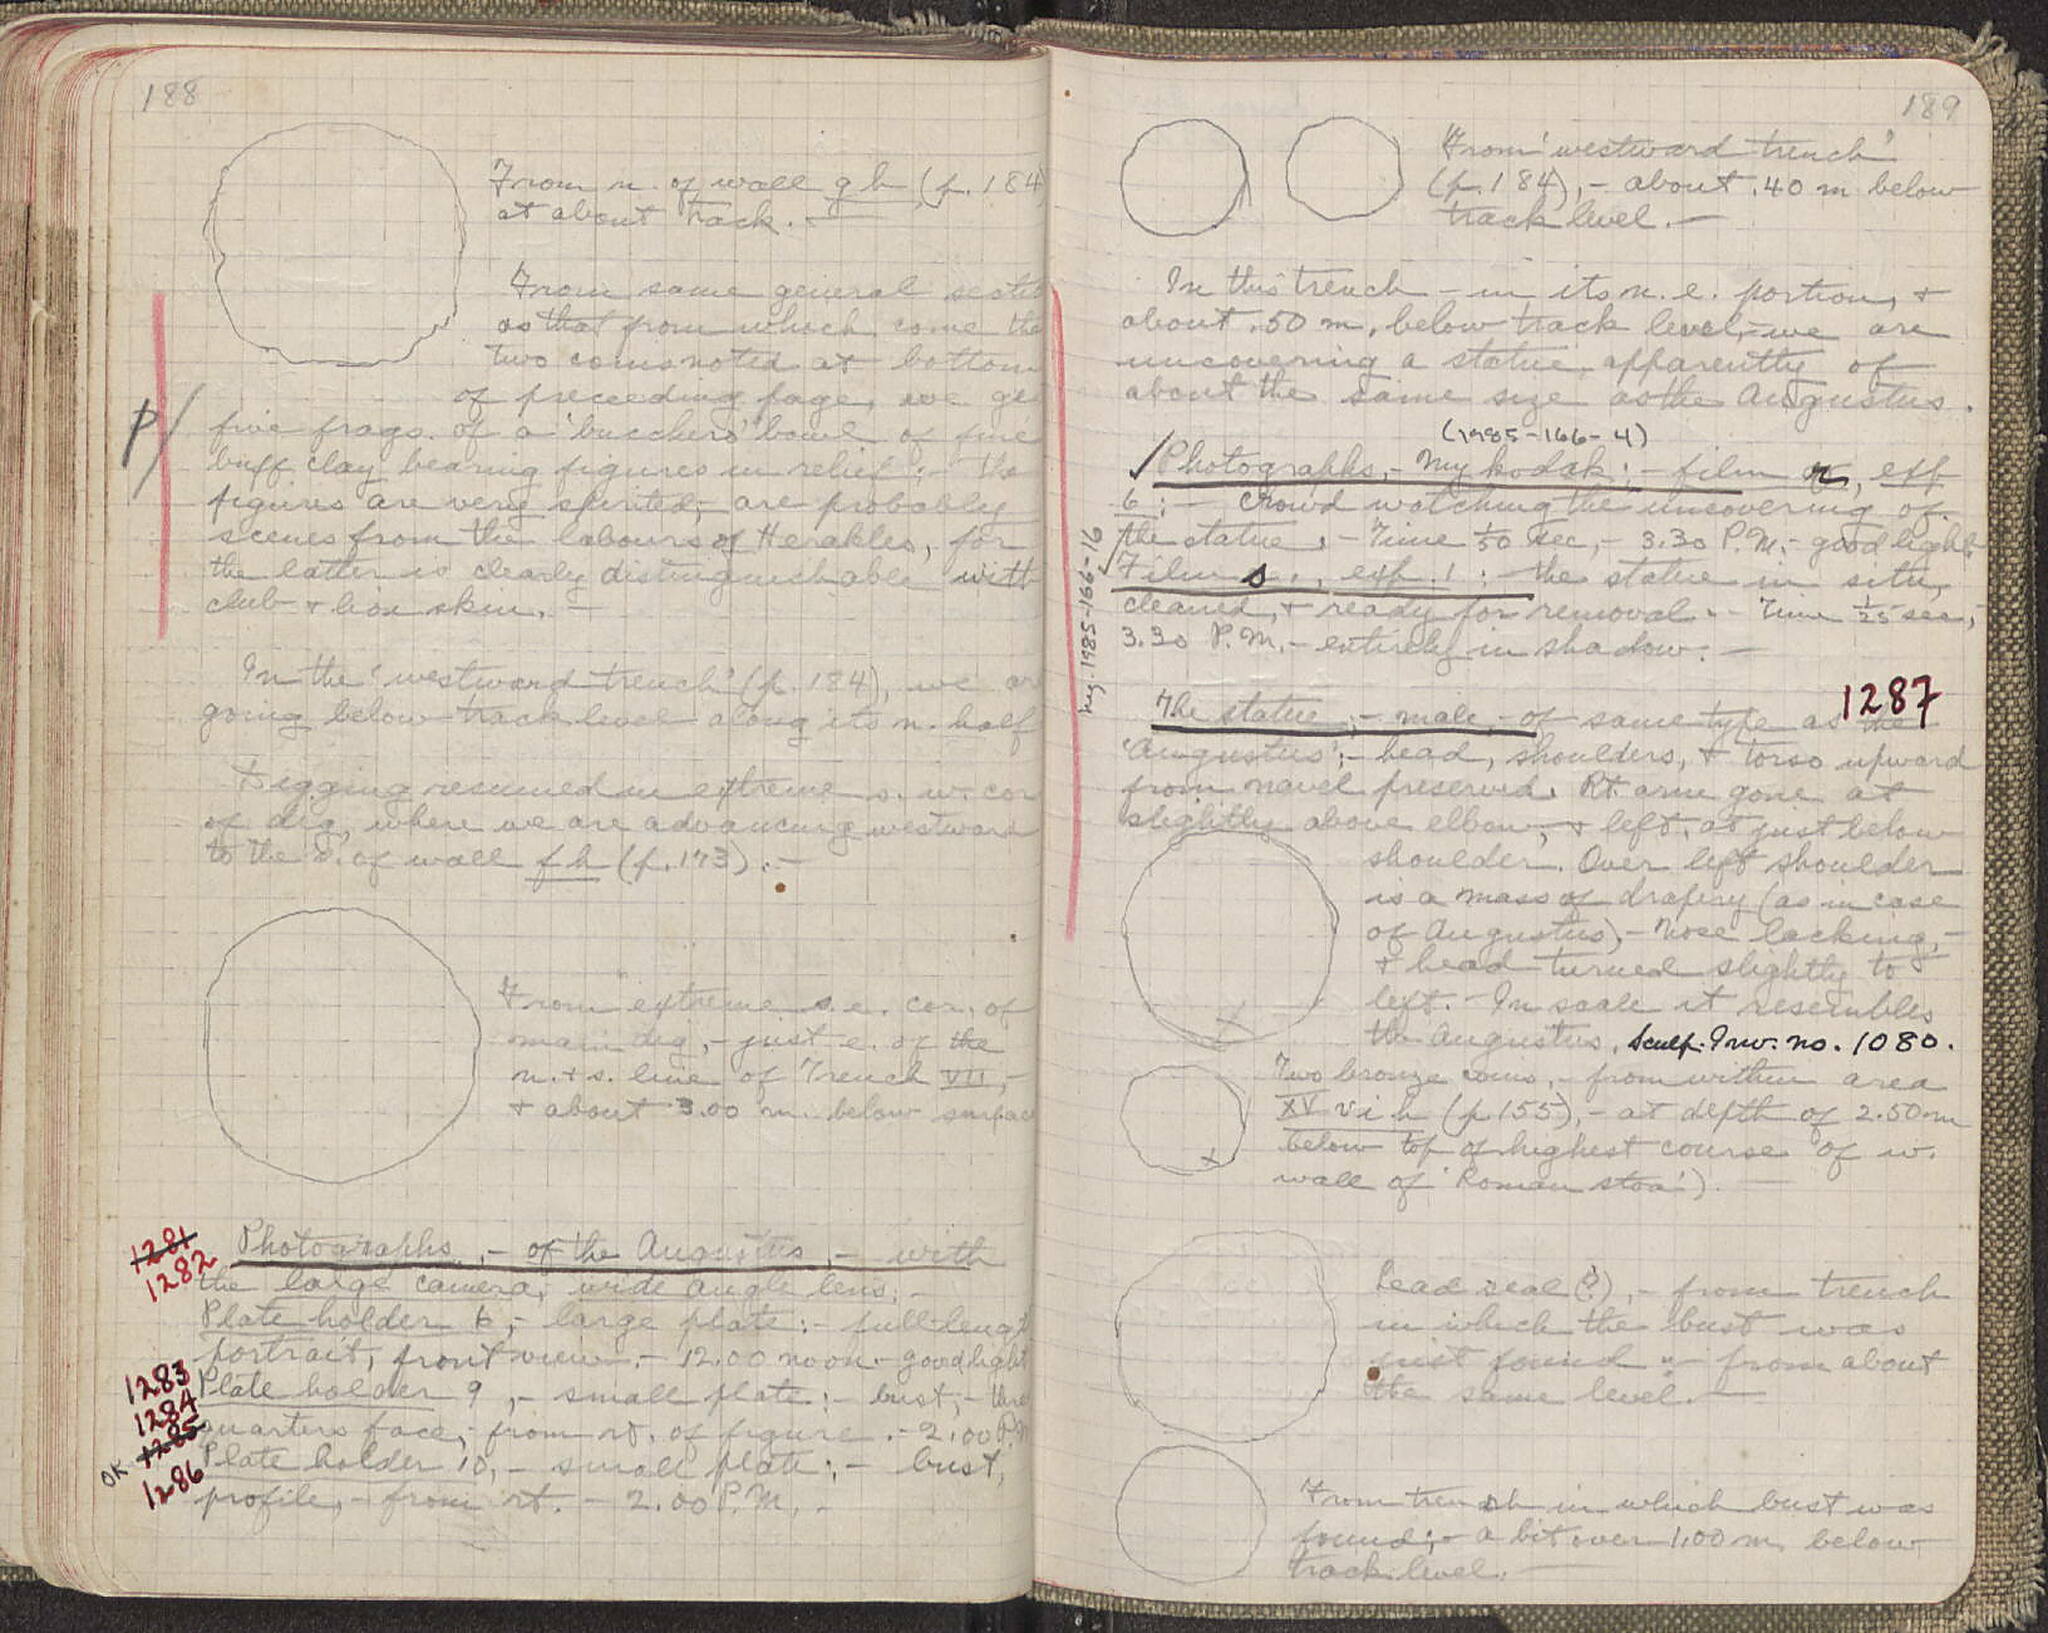 188
From n. of wall g h (p. 184)
at about track. —
From same general sectio
as that from which come the
two coins noted at bottom
of preceeding page, we ge
P/
five frags. of a 'bucchero' bowl of fine
buff clay bearing figures in relief; - the
figures are very spirited; are probably
scenes from the labours of Herakles, for
the latter is clearly distinguishable with
club + lion skin. —
In the 'westward trench' (p. 184), we are
going below track level along its n. half
Digging resumed in extreme s. w. cor
of dig, where we are advancing westward
to the s. of wall f h (p. 173). -
From extreme s. e. cor. of
main dig, - just e. of the
n. + s. line of Trench VII, -
+ about 3.00 m. below surfac
1281
1282
Photographs, - of the Augustus, - with
the large camera; wide angle lens: -
Plate holder 6, - large plate: - full-lengt
portrait, front view. - 12.00 noon - good light
1283
Plate holder 9, - small plate: - bust, - thre
1284
quarters face, - from rt. of figure. - 2.00 P.M
1285
Plate holder 10, - small plate: - bust,
OK
1286
profile, - from rt. - 2.00 P.M. -
189
From 'westward trench'
(p. 184), - about .40 m below
track level. —
In this trench - in its n. e. portion, +
about .50 m. below track level, - we are
uncovering a statue, apparently of
about the same size as the Augustus.
(1985-166-4)
✓Photographs, - My kodak: - film r, exp
6: - crowd watching the uncovering of
the statue. - Time 1/50 sec, - 3.30 P.M. - good light.
✓Film s., exp. 1: - the statue in situ,
cleaned, + ready for removal. - Time 1/25 sec, -
3.30 P.M. - entirely in shadow. —
neg. 1985-166-16
1287
The statue: - male, - of same type as the
'Augustus': - head, shoulders, + torso upward
from navel preserved. Rt. arm gone at
slightly above elbow, + left, at just below
shoulder. Over left shoulder
is a mass of drapery (as in case
of Augustus). - Nose lacking, -
+ head turned slightly to
left. - In scale it resembles
the Augustus. Sculp. Inv. no. 1080.
Two bronze coins, - from within area
XV v i h (p 155), - at depth of 2.50 m
below top of highest course of w.
wall of 'Roman stoa'). —
Lead seal (?), - from trench
in which the bust was
just found - from about
the same level. —
From trench in which bust was
found; - a bit over 1.00 m. below
track level. —